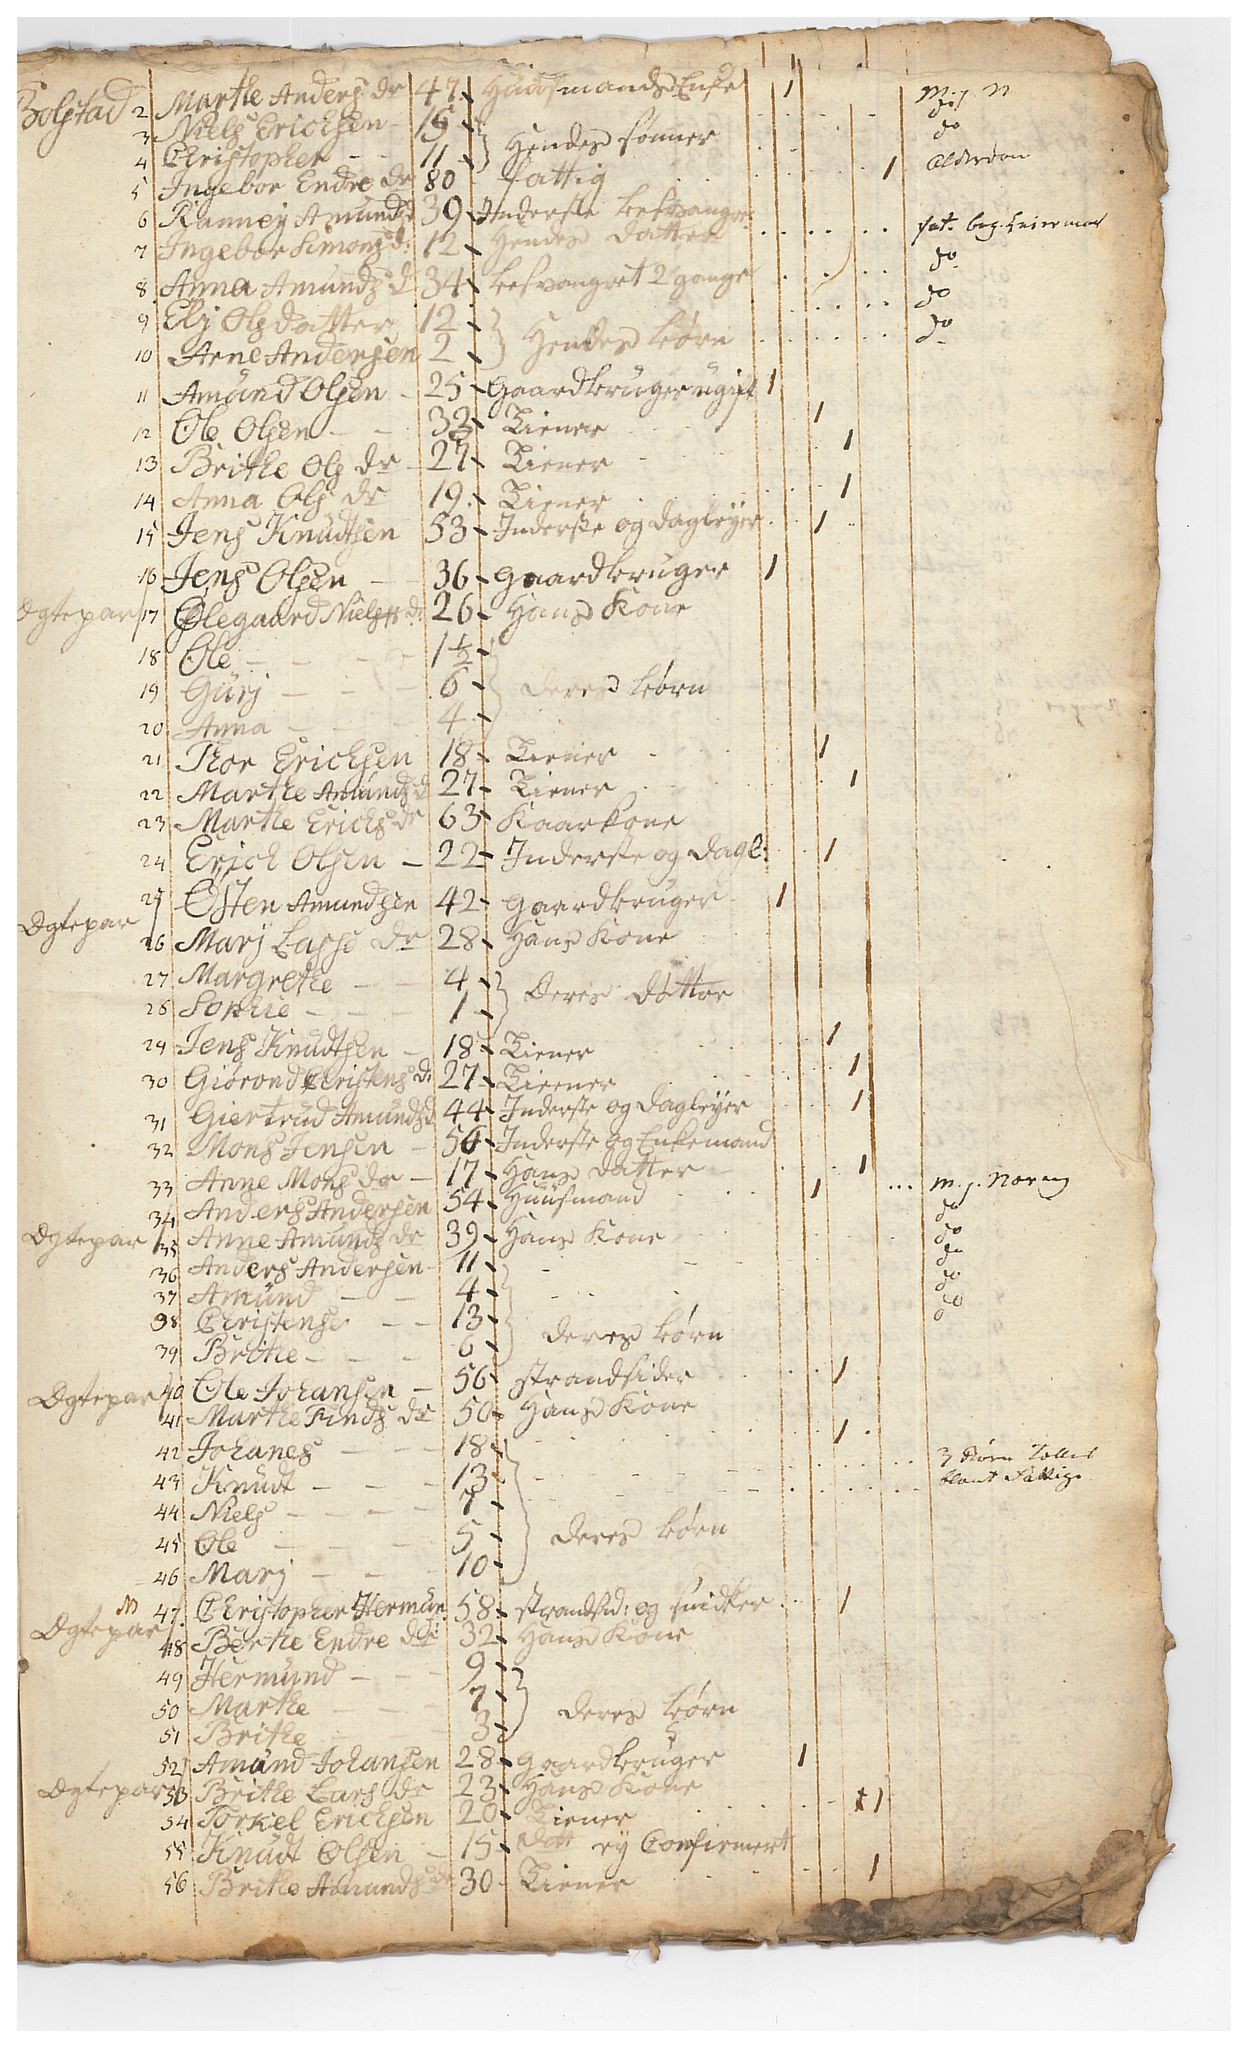 Bolstad 2 Marthe Anders dr 47 Huusmands Enke 1 M. j. N
3 Niels Erichsen 15 do
4 Christopher 11 Hendes sønner do
5 Ingebor Endre dr 80 fattig 1 Alderdom
6 Ranney Amunds d 39 Inderste besvangret
7 Ingebor Simons d: 12 Hendes datter do
8 Anna Amunds d 34 besvangret 2 gange do
9 Elj Ols datter 12 do
10 Arne Andersen 2 Hendes børn
11 Amund Olsen 25 Gaardbruger ugift 1
12 Ole Olsen 32 Tiener 1
13 Brithe Ols dr 27 Tiener 1
14 Anna Ols dr 19 Tiener 1
15 Jens Knudtsen 53 Inderste og dagleyer 1
16 Jens Olsen 36 Gaardbruger 1
Ægtepar 17 Ølegaard Niels d: 26 Hans Kone
18 Ole 1½
19 Gurj 6 deres børn
20 Anna 4
21 Thor Erichsen 18 Tiener 1
22 Marthe Amunds d 27 Tiener 1
23 Marthe Erichs dr 63 Kaarkone
24 Erich Olsen 22 Inderste og dagl: 1
25 Østen Amundsen 42 Gaardbruger 1
Ægtepar 26 Marj Lasse dr 28 Hans Kone
27 Margrethe 4 Deres døttre
28 Sophie 1
29 Jens Knudtsen 18 Tiener 1
30 Giørond Christens d: 27 Tiener 1
31 Giertrud Amunds d 44 Inderste og dagleyer 1
32 Mons Jensen 56 Inderste og Enkemand
33 Anne Mons dr 17 Hans datter 1
34 Anders Andersen 54 Huusmand 1 M. j. Noreng
Ægtepar 35 Anne Amunds dr 39 Hans Kone do
36 Anders Andersen 11 do
37 Amund 4 do
38 Christense 13 deres børn do
39 Brithe 6 do
Ægtepar 40 Ole Johansen 56 strandsider 1
41 Marthe Finds dr 50 Hans Kone
42 Johanes 18 1
43 Knudt 13 3 Børn
44 Niels 7 blant Fattige
45 Ole 5 deres børn
46 Marj 10
47 Christopher Hermun: 58 strandsid: og snidker 1
Ægtepar 48 Berthe Endre dr 32 Hans Kone
49 Hermund 9
50 Marthe 7 deres børn
51 Brithe 3
52 Amund Johansen 28 Gaardbruger 1
Ægtepar 53 Brithe Lars dr 23 Hans Kone
54 Torkel Erichsen 20 Tiener 1
55 Knudt Olsen 15 ey Confirmert
56 Brithe Amunds dr 30 Tiener 1